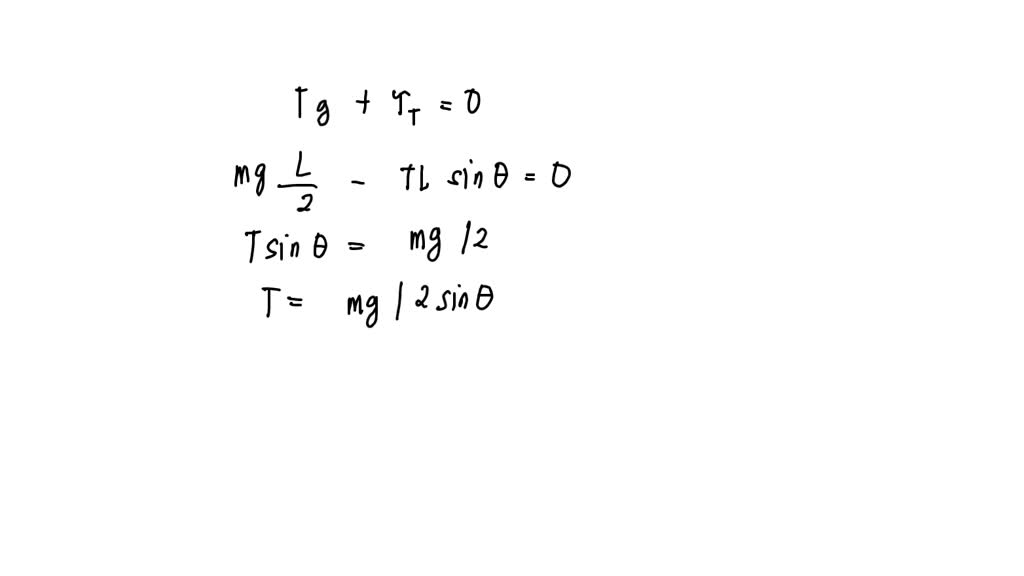 τg + τT = 0
mg L/2 - TL sin θ = 0
T sin θ = mg /2
T = mg / 2 sin θ